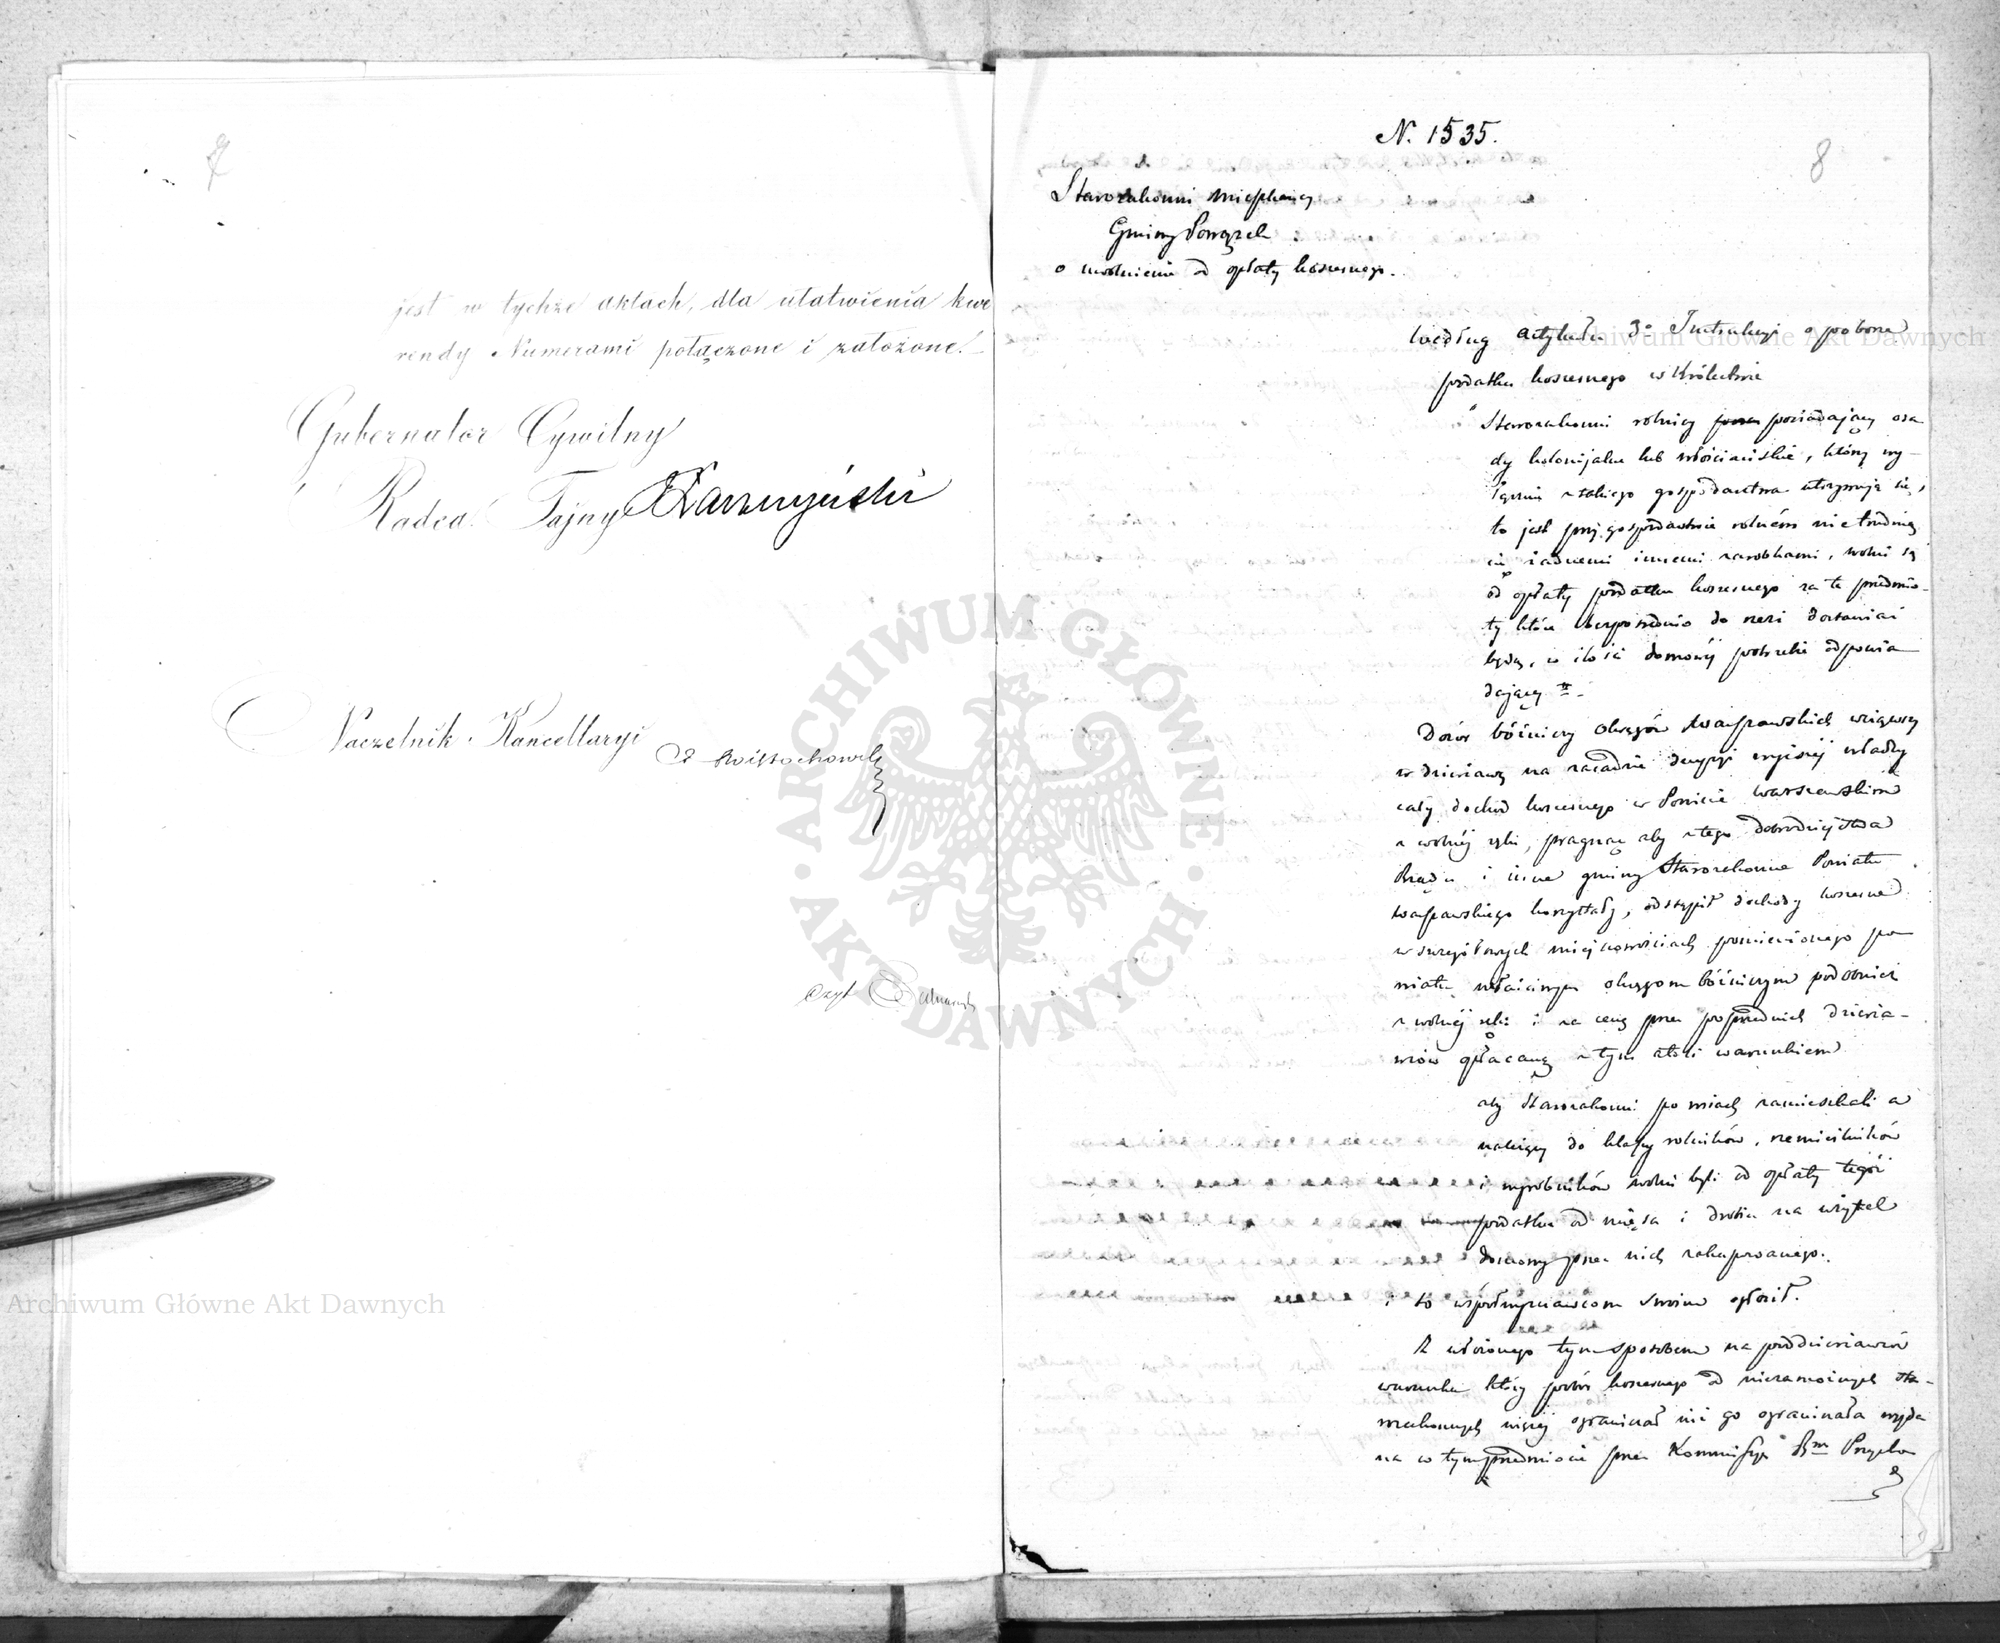 7
jest w tychże aktach, dla ułatwienia kwe
rendy Numerami połączone i założone.
Gubernator Cywilny
Radca Tajny
Naczelnik Kancellaryi
Czyt
N. 1535.
8
Starozakonni mieszkańcy
Gminy Powązek
o uwolnienie od opłaty koszernego.
Według artykułu 3º Instrukcyi o poborze
podatku koszernego w Królestwie
"Starozakonni rolnicy posiadający osa
dy kolonijalne lub włościańskie, którzy wy-
łącznie z takiego gospodarstwa utrzymują się,
to jest przy gospodarstwie rolném nie trudnią
się żadnemi innemi zarobkami, wolni są
od opłaty podatku koszernego za te przedmio-
ty które bezpośrednio do rzezi dostawiać
będą, w ilości domowéj potrzebie odpowia
dającéj" -
Dozór bóżniczy Okręgów Warszawskich wziąwszy
w dzierżawę na zasadzie decyzyi wyższéj władzy
cały dochód koszernego w Powiecie Warszawskim
z wolnéj ręki, pragnąc aby z tego dobrodziejstwa
Rządu i inne gminy Starozakonne Powiatu
Warszawskiego korzystały, odstąpił dochody koszerne
w szczegółowych miejscowościach pomienionego po
wiatu właściwym okręgom bóżniczym podobnież
z wolnéj ręki i za cenę przez poprzednich dzierża-
wców opłacaną z tym atoli warunkiem
aby Starozakonni po wsiach zamieszkali a
należący do klassy rolników, rzemieślników
i wyrobników wolni byli od opłaty tegoż
podatku od mięsa i drobiu na użytek
domowy przez nich zakupowanego.
i to współwyznawcom swoim ogłosił.
Z włożonego tym sposobem na poddzierżawców
warunku który pobór koszernego od niezamożnych Sta-
rozakonnych więcéj ograniczał niż go ograniczała wyda
na w tym przedmiocie przez Kommissyę Przycho
Archiwum Główne Akt Dawnych
Archiwum Główne Akt Dawnych
ARCHIWUM GŁÓWNE
AKT DAWNYCH